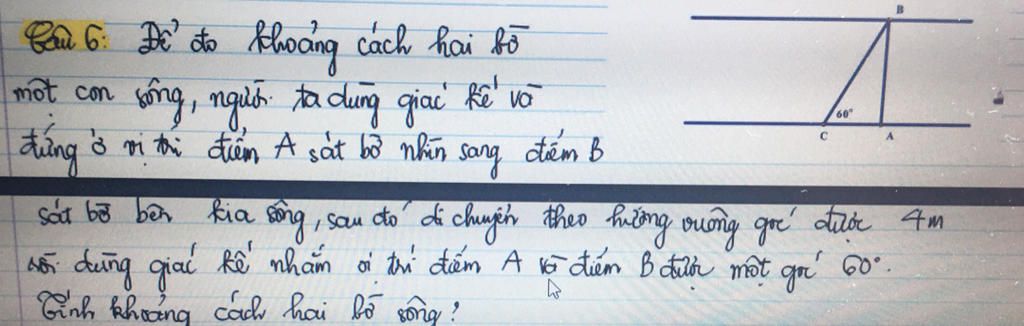 Câu 6: Để đo khoảng cách hai bờ
một con sông, người ta dùng giác kế và
đứng ở vị trí điểm A sát bờ nhìn sang điểm B
sát bờ bên kia sông, sau đó di chuyển theo hướng vuông góc được 4m
rồi dùng giác kế nhắm vị trí điểm A và điểm B được một góc 60°.
Tính khoảng cách hai bờ sông?
B
60°
C
A